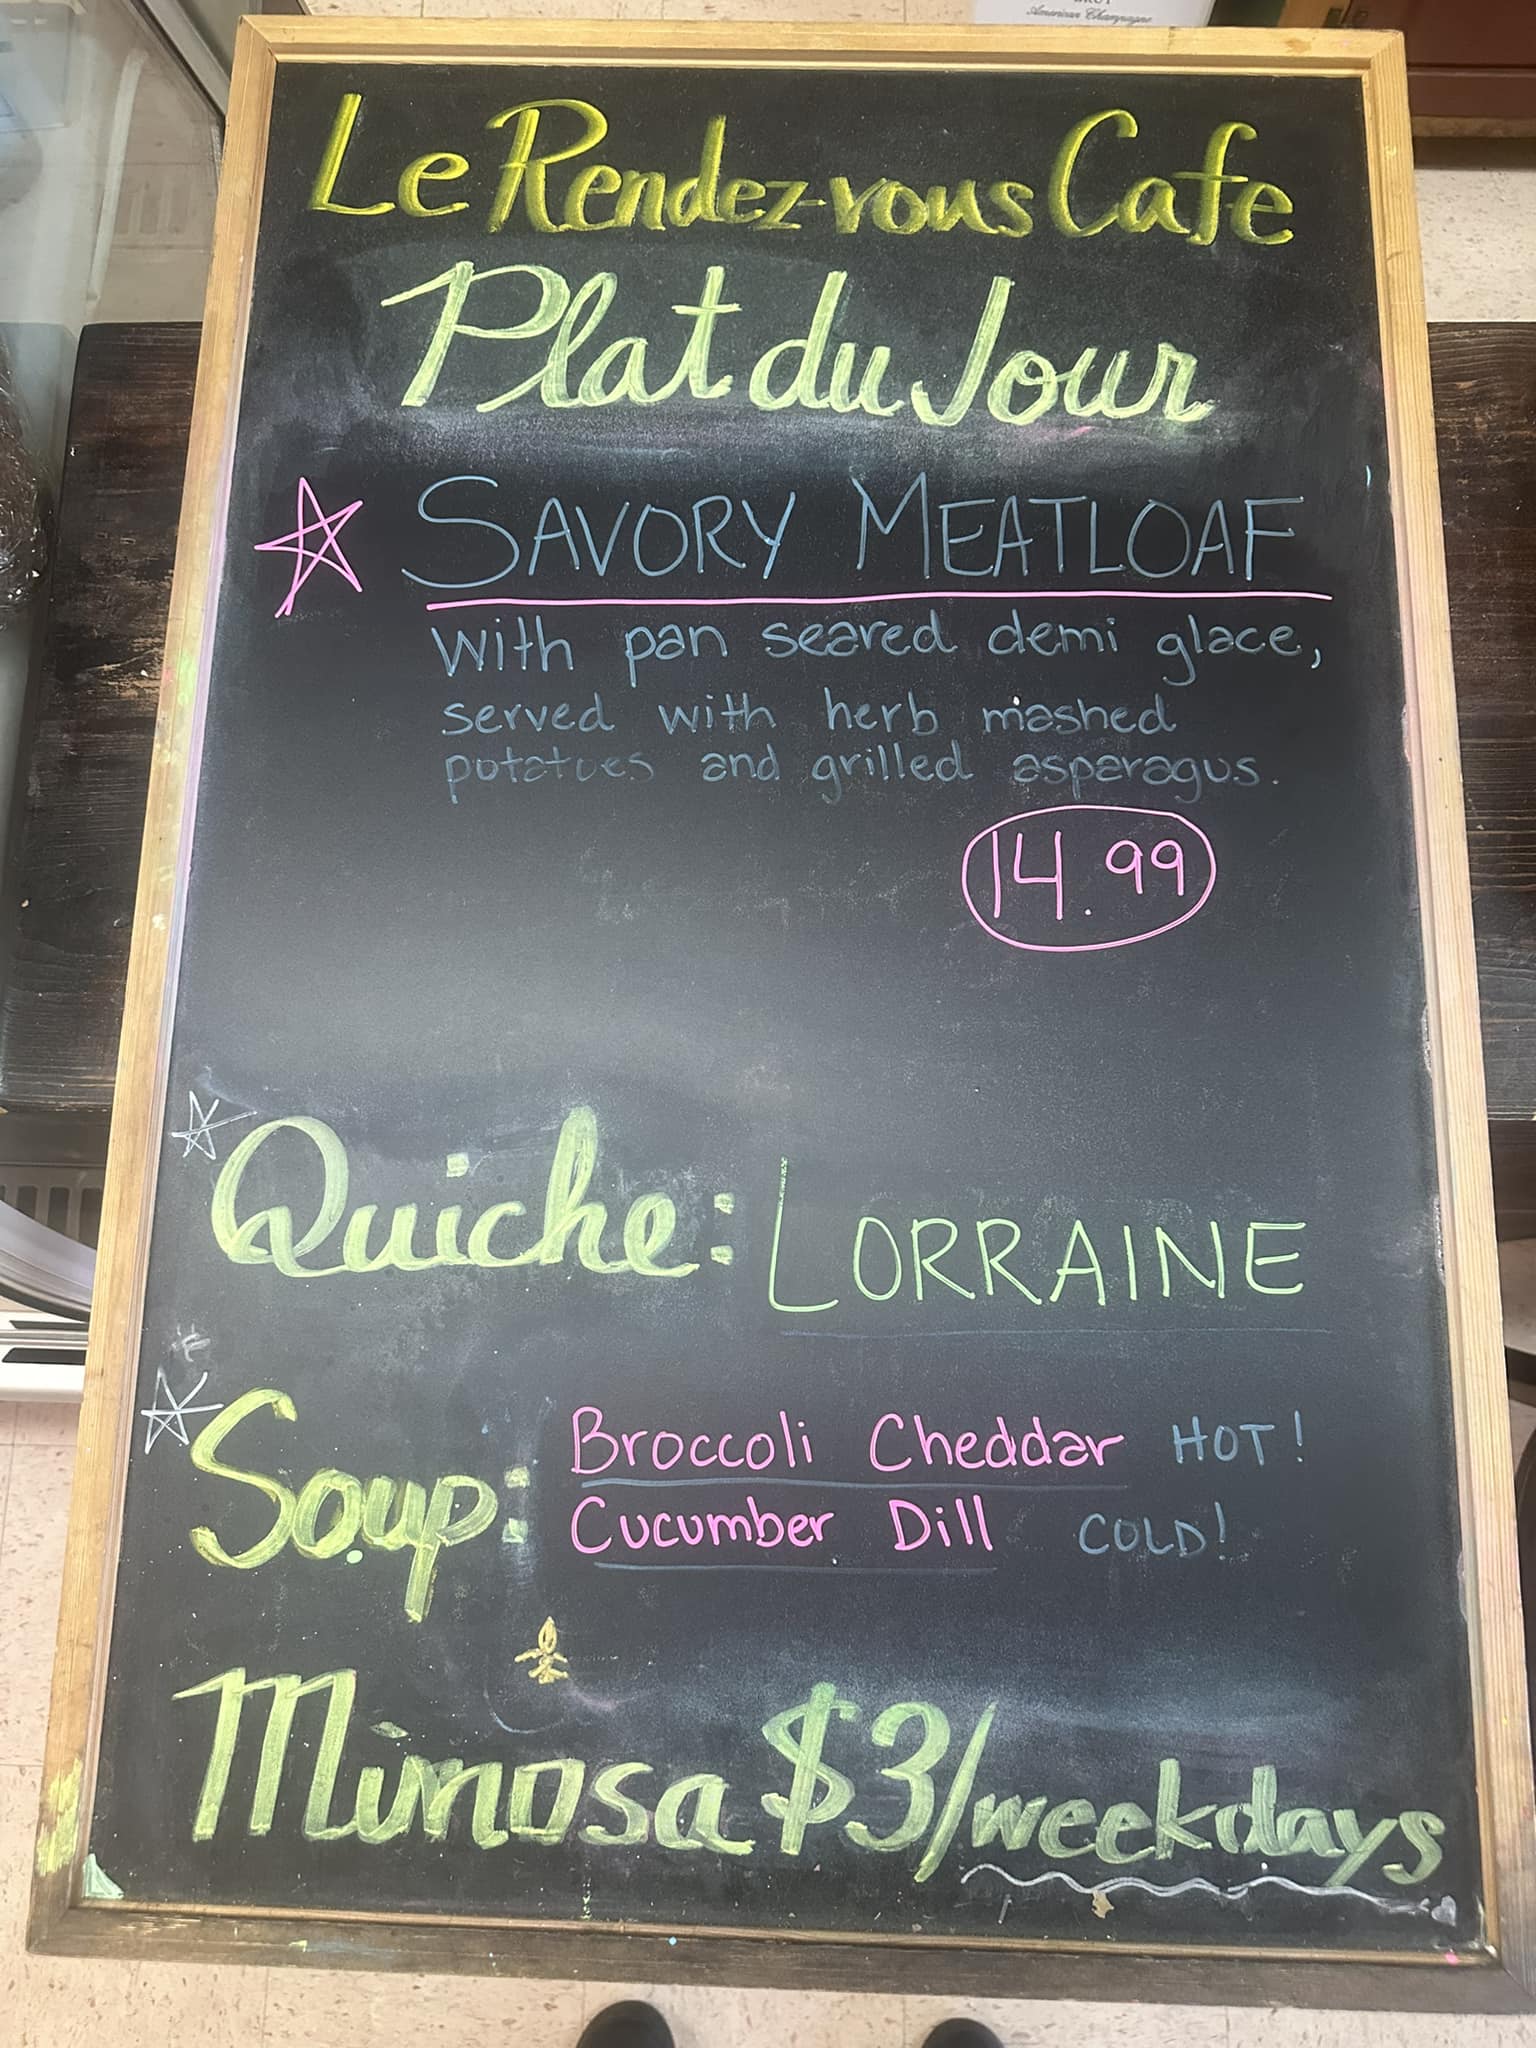 BRUT
American Champagne
Le Rendez-vous Cafe
Plat du Jour
SAVORY MEATLOAF
with pan seared demi glace,
served with herb mashed
potatoes and grilled asparagus.
14.99
Quiche: LORRAINE
Soup: Broccoli Cheddar HOT!
Cucumber Dill COLD!
Mimosa $3/weekdays